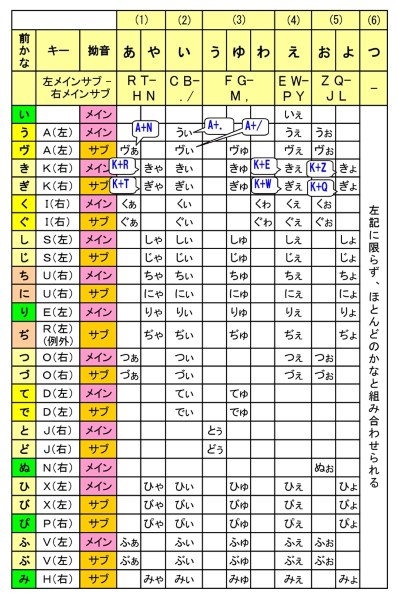 (1) (2) (3) (4) (5) (6)
前かな キー 拗音 あ や い う ゆ わ え お よ つ
左メインサブ－ 右メインサブ R T- H N C B- . / F G- M , E W- P Y Z Q- J L －
い メイン いぇ
う A(左) メイン うい うぇ うぉ
ヴ A(左) サブ ヴぁ ヴぃ ヴゅ ヴぇ ヴぉ
き K(右) メイン きゃ きぃ きゅ きぇ きょ
ぎ K(右) サブ ぎゃ ぎぃ ぎゅ ぎぇ ぎょ
く I(右) メイン くぁ くい くわ くぇ くぉ
ぐ I(右) サブ ぐぁ ぐい ぐわ ぐぇ ぐぉ
し S(左) メイン しゃ しぃ しゅ しぇ しょ
じ S(左) サブ じゃ じぃ じゅ じぇ じょ
ち U(右) メイン ちゃ ちぃ ちゅ ちぇ ちょ
に U(右) サブ にゃ にぃ にゅ にぇ にょ
り E(左) メイン りゃ りぃ りゅ りぇ りょ
ぢ R(左) (例外) サブ ぢゃ ぢぃ ぢゅ ぢぇ ぢょ
つ O(右) メイン つぁ つい つぇ つぉ
づ O(右) サブ づぁ づい づぇ づぉ
て D(左) メイン てぃ てゅ
で D(左) サブ でぃ でゅ
と J(右) メイン とぅ
ど J(右) サブ どぅ
ぬ N(右) メイン ぬぉ
ひ X(左) メイン ひゃ ひぃ ひゅ ひぇ ひょ
び X(左) サブ びゃ びぃ びゅ びぇ びょ
ぴ P(右) サブ ぴゃ ぴぃ ぴゅ ぴぇ ぴょ
ふ V(左) メイン ふぁ ふぃ ふゅ ふぇ ふぉ
ぶ V(左) サブ ぶぁ ぶぃ ぶゅ ぶぇ ぶぉ
み H(右) サブ みゃ みぃ みゅ みぇ みょ
左記に限らず、ほとんどのかなと組み合わせられる
A+N
A+.
A+/
K+R
K+E
K+Z
K+T
K+W
K+Q